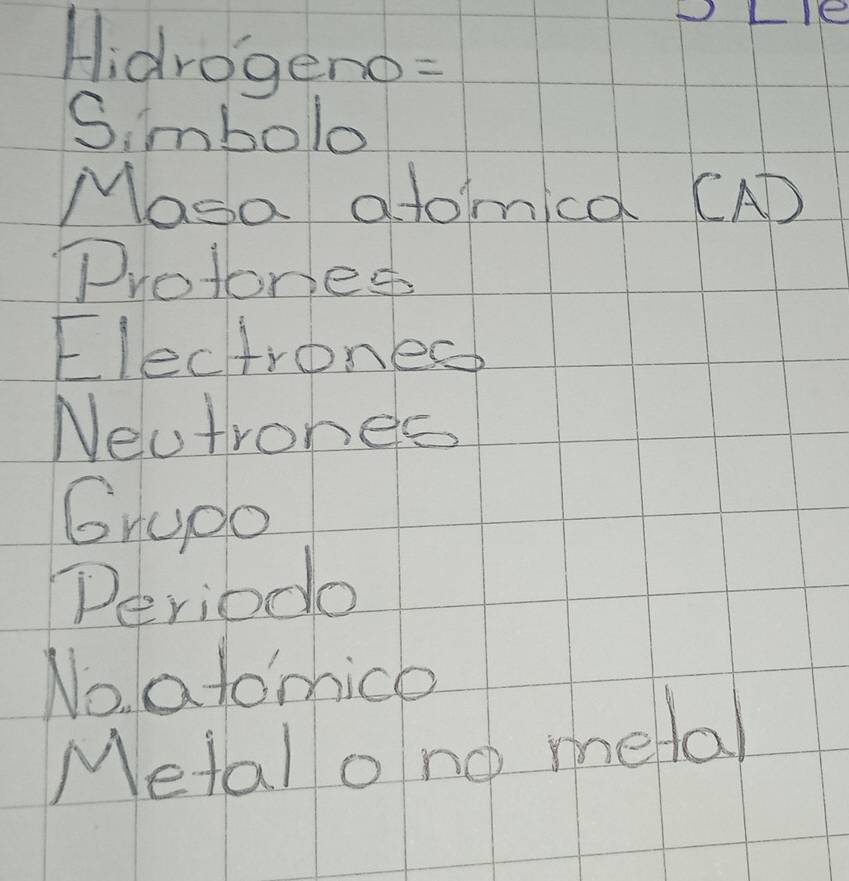 Hidrógeno=
Símbolo
Masa atómica (A)
Protones
Electrones
Neutrones
Grupo
Periodo
No. atómico
Metal o no metal